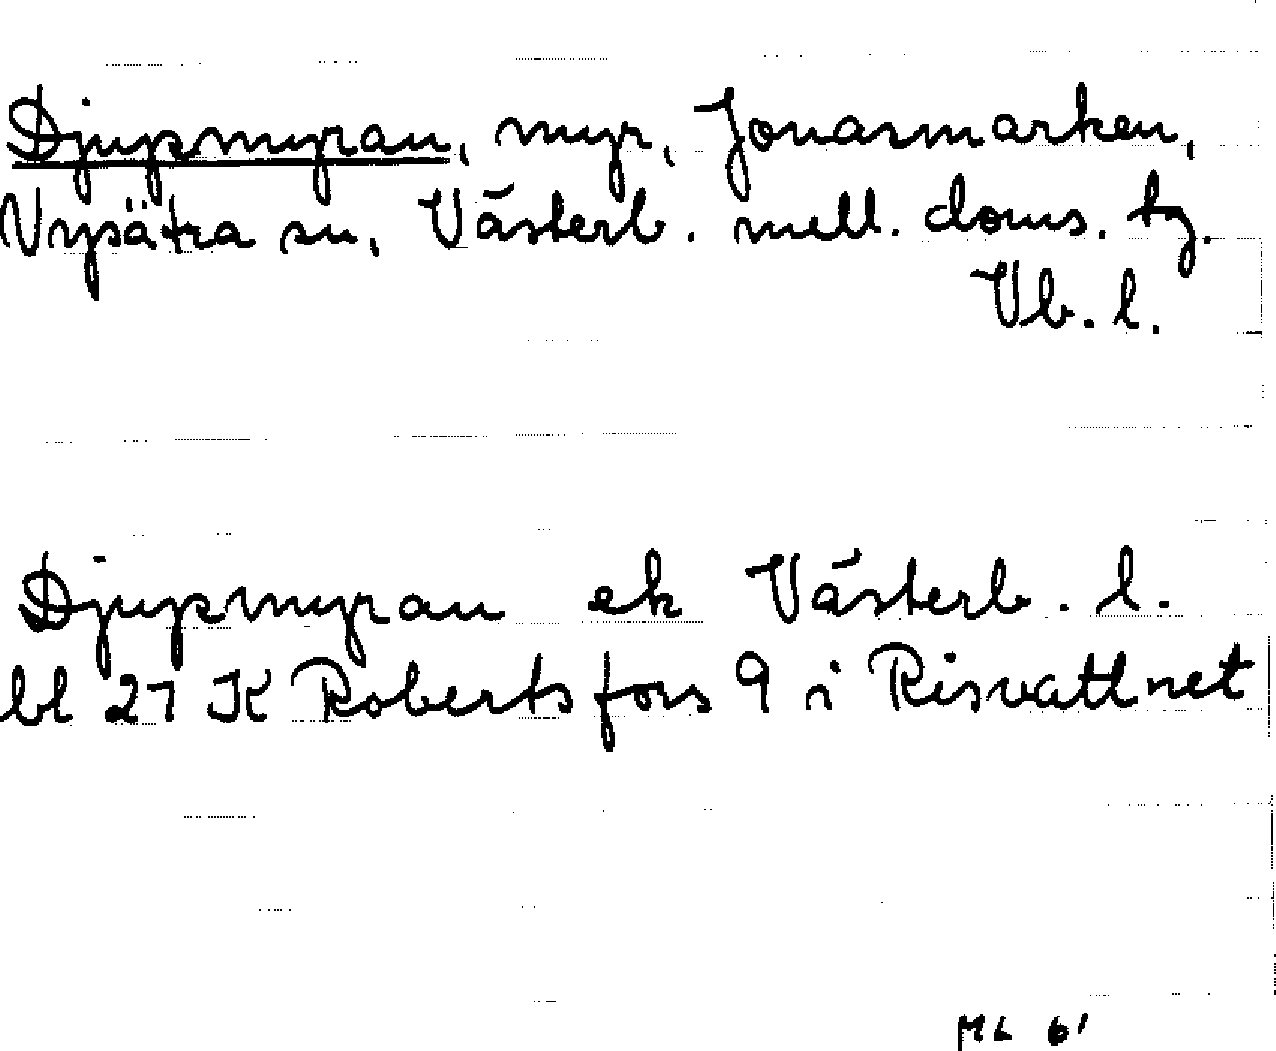 Djupmyran, myr, Jonasmarken,
Nysätra sn, Västerb. mell. doms. tg.
Vb. l.
Djupmyran ek Västerb. l.
bl 27 K Robertsfors 9 i Risvattnet
ML 61